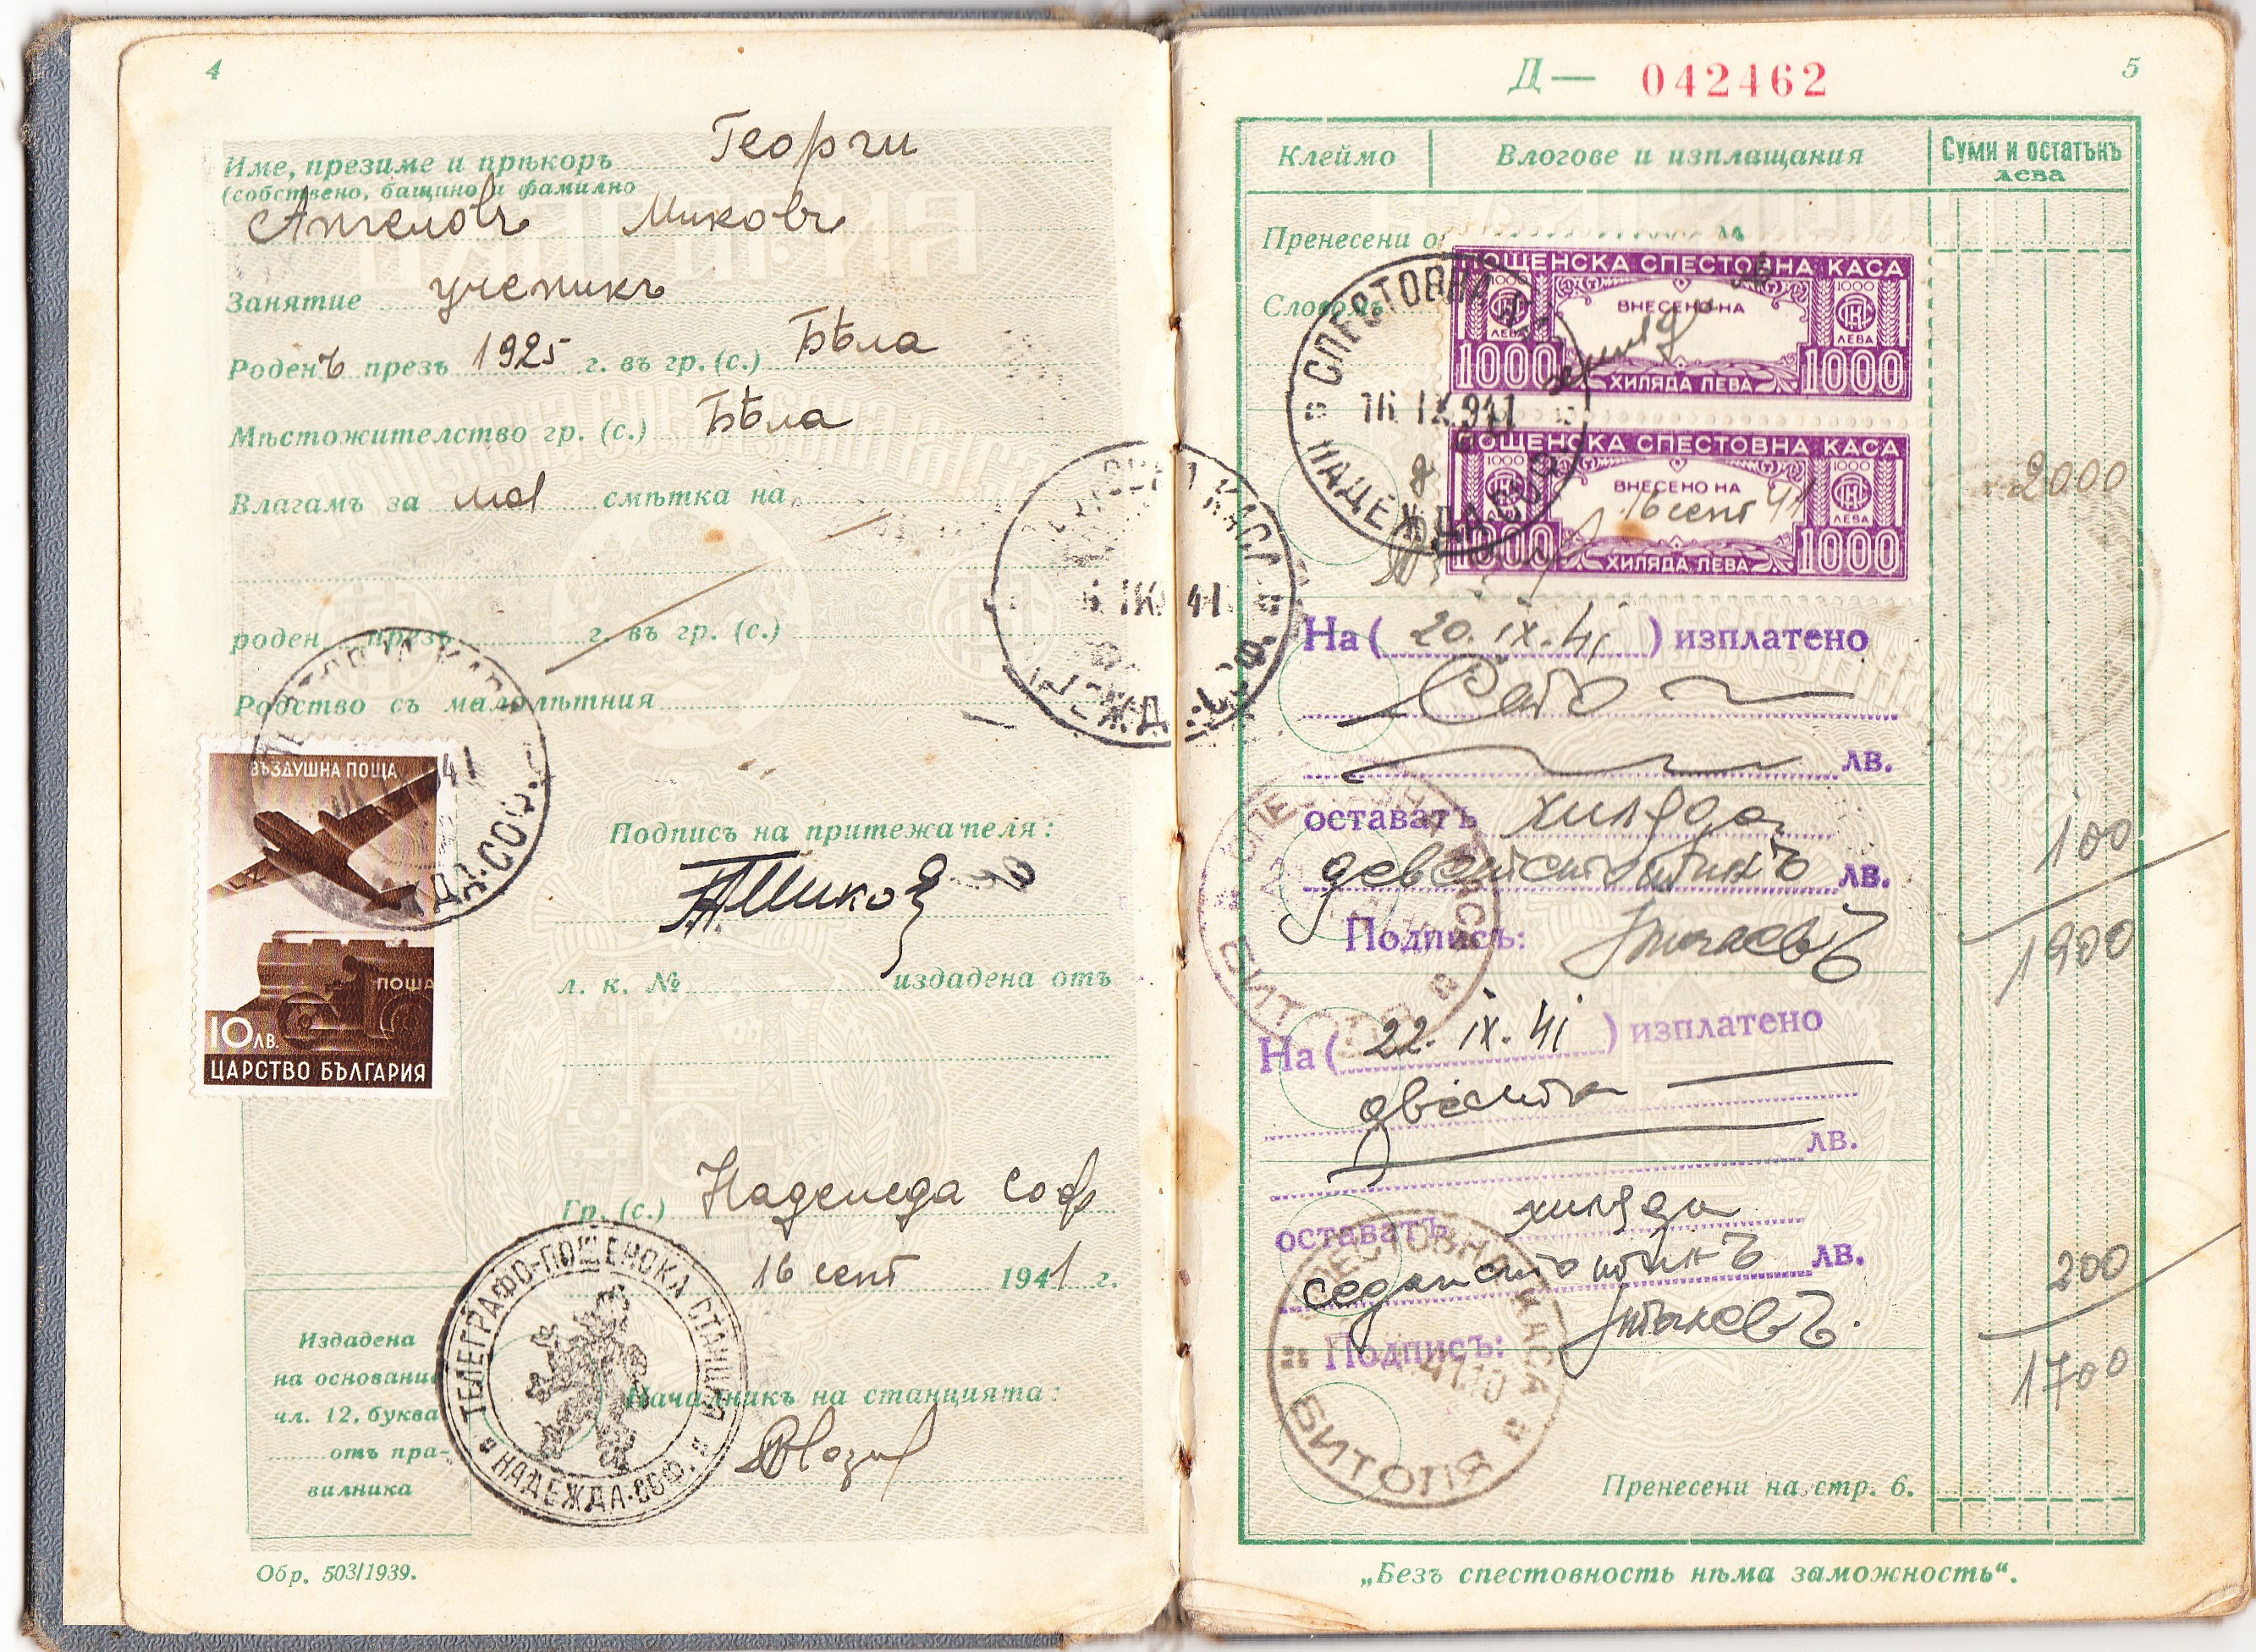 4
Име, презиме и прѣкоръ Георги
(собствено, бащино и фамилно
Ангеловъ Миковъ
Занятие ученикъ
Роденъ презъ 1925 г. въ гр. (с.) Бѣла
Мѣстожителство гр. (с.) Бѣла
Влагамъ за моя смѣтка на
роден презъ г. въ гр. (с.)
Родство съ малолѣтния
ВЪЗДУШНА ПОЩА
ПОЩА
10 ЛВ.
ЦАРСТВО БЪЛГАРИЯ
Подписъ на притежателя:
л. к. № издадена отъ
Гр. (с.) Надежда Соф
16 септ 1941 г.
ТЕЛЕГРАФО-ПОЩЕНСКА СТАНЦИЯ
НАДЕЖДА-СОФ.
Издадена
на основание
чл. 12, буква
отъ пра-
вилника
Началникъ на станцията:
Обр. 503/1939.
Д— 042462
5
Клеймо Влогове и изплащания Суми и остатъкъ
лева
Пренесени о
Словомъ
ПОЩЕНСКА СПЕСТОВНА КАСА
1000 ВНЕСЕНО НА 1000
ЛЕВА ЛЕВА
1000 ХИЛЯДА ЛЕВА 1000
СПЕСТОВНА
16 IX 941
НАДЕЖДА СОФ.
ПОЩЕНСКА СПЕСТОВНА КАСА
1000 ВНЕСЕНО НА 1000
16 септ 41
ЛЕВА
1000 ХИЛЯДА ЛЕВА 1000
2000
На ( 20. IX. 41 ) изплатено
Сто
лв.
оставатъ хиляда
деветстотинъ лв. 100
Подписъ: 1900
На ( 22. IX. 41 ) изплатено
двеста
лв.
оставатъ хиляда
седемстотинъ лв. 200
Подписъ: 1700
СПЕСТОВНА КАСА
БИТОЛЯ
Пренесени на стр. 6.
„Безъ спестовность нѣма заможность“.